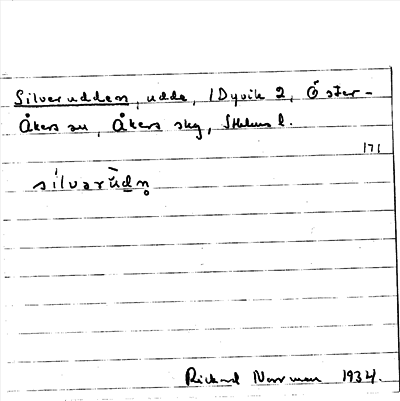 Silverudden, udde, / Dyvik 2, Öster-
Åkers sn, Åkers skg, Sthlms l.
171
silvarùdn̥
Rickard Norrman 1934.